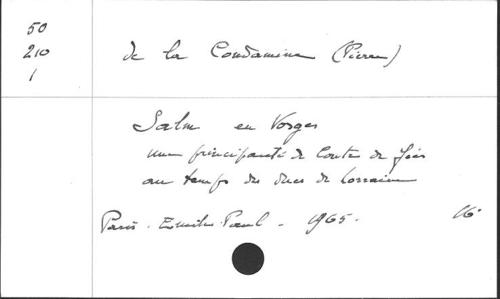 50
210
1
de la Condamine (Pierre)
Salm en Vosges
une principauté de Conte de fées
au temps des ducs de Lorraine
Paris. Emile-Paul. 1965. 16°